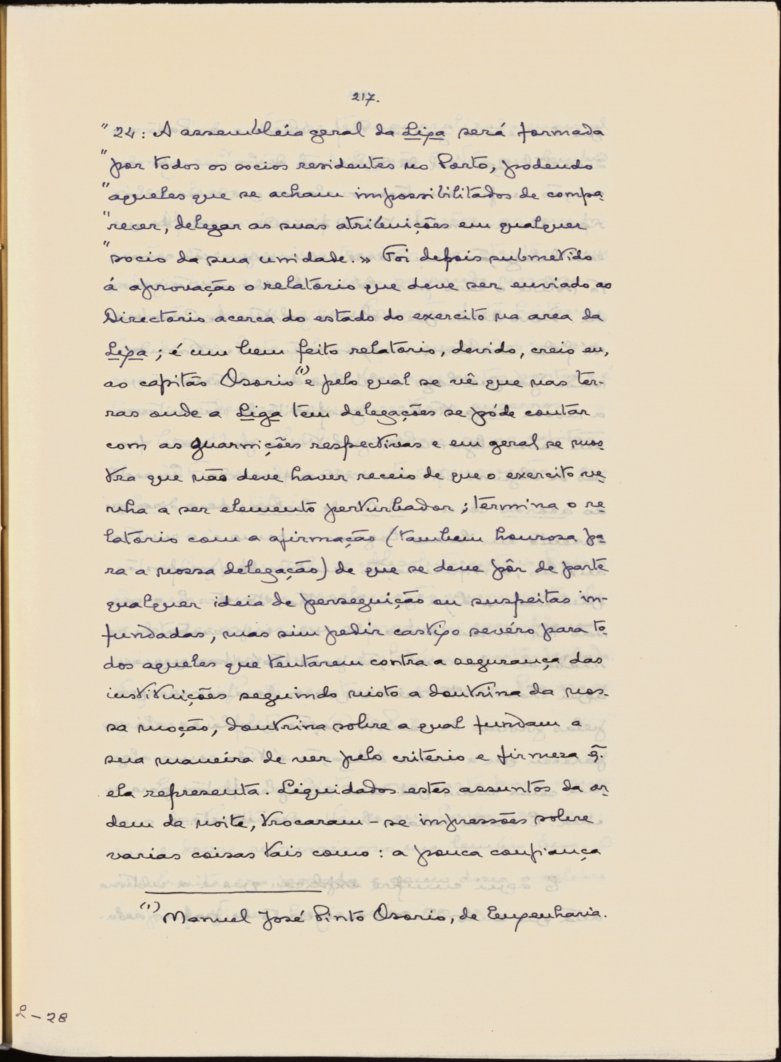 217.
"24: A assembleia geral da Liga será formada
"por todos os socios residentes no Porto, podendo
"aqueles que se acham impossibilitados de compa-
"recer, delegar as suas atribuições em qualquer
"socio da sua unidade.» Foi depois submetido
á aprovação o relatorio que deve ser enviado ao
Directorio acerca do estado do exercito na area da
Liga; é um bem feito relatorio, devido, creio eu,
ao capitão Osorio (1) e pelo qual se vê que nas ter-
ras onde a Liga tem delegações se póde contar
com as guarnições respectivas e em geral se mos-
tra que não deve haver receio de que o exercito ve-
nha a ser elemento perturbador; termina o re-
latorio com a afirmação (tambem honrosa pa-
ra a nossa delegação) de que se deve pôr de parte
qualquer ideia de perseguição ou suspeitas in-
fundadas, mas sim pedir castigo sevéro para to-
dos aqueles que tentarem contra a segurança das
instituições seguindo nisto a doutrina da nos-
sa moção, doutrina sobre a qual fundam a
sua maneira de ver pelo criterio e firmeza q̃.
ela representa. Liquidados estes assuntos da or-
dem da noite, trocaram-se impressões sobre
varias coisas tais como: a pouca confiança
(1) Manuel José Pinto Osorio, de Engenharia.
2-28